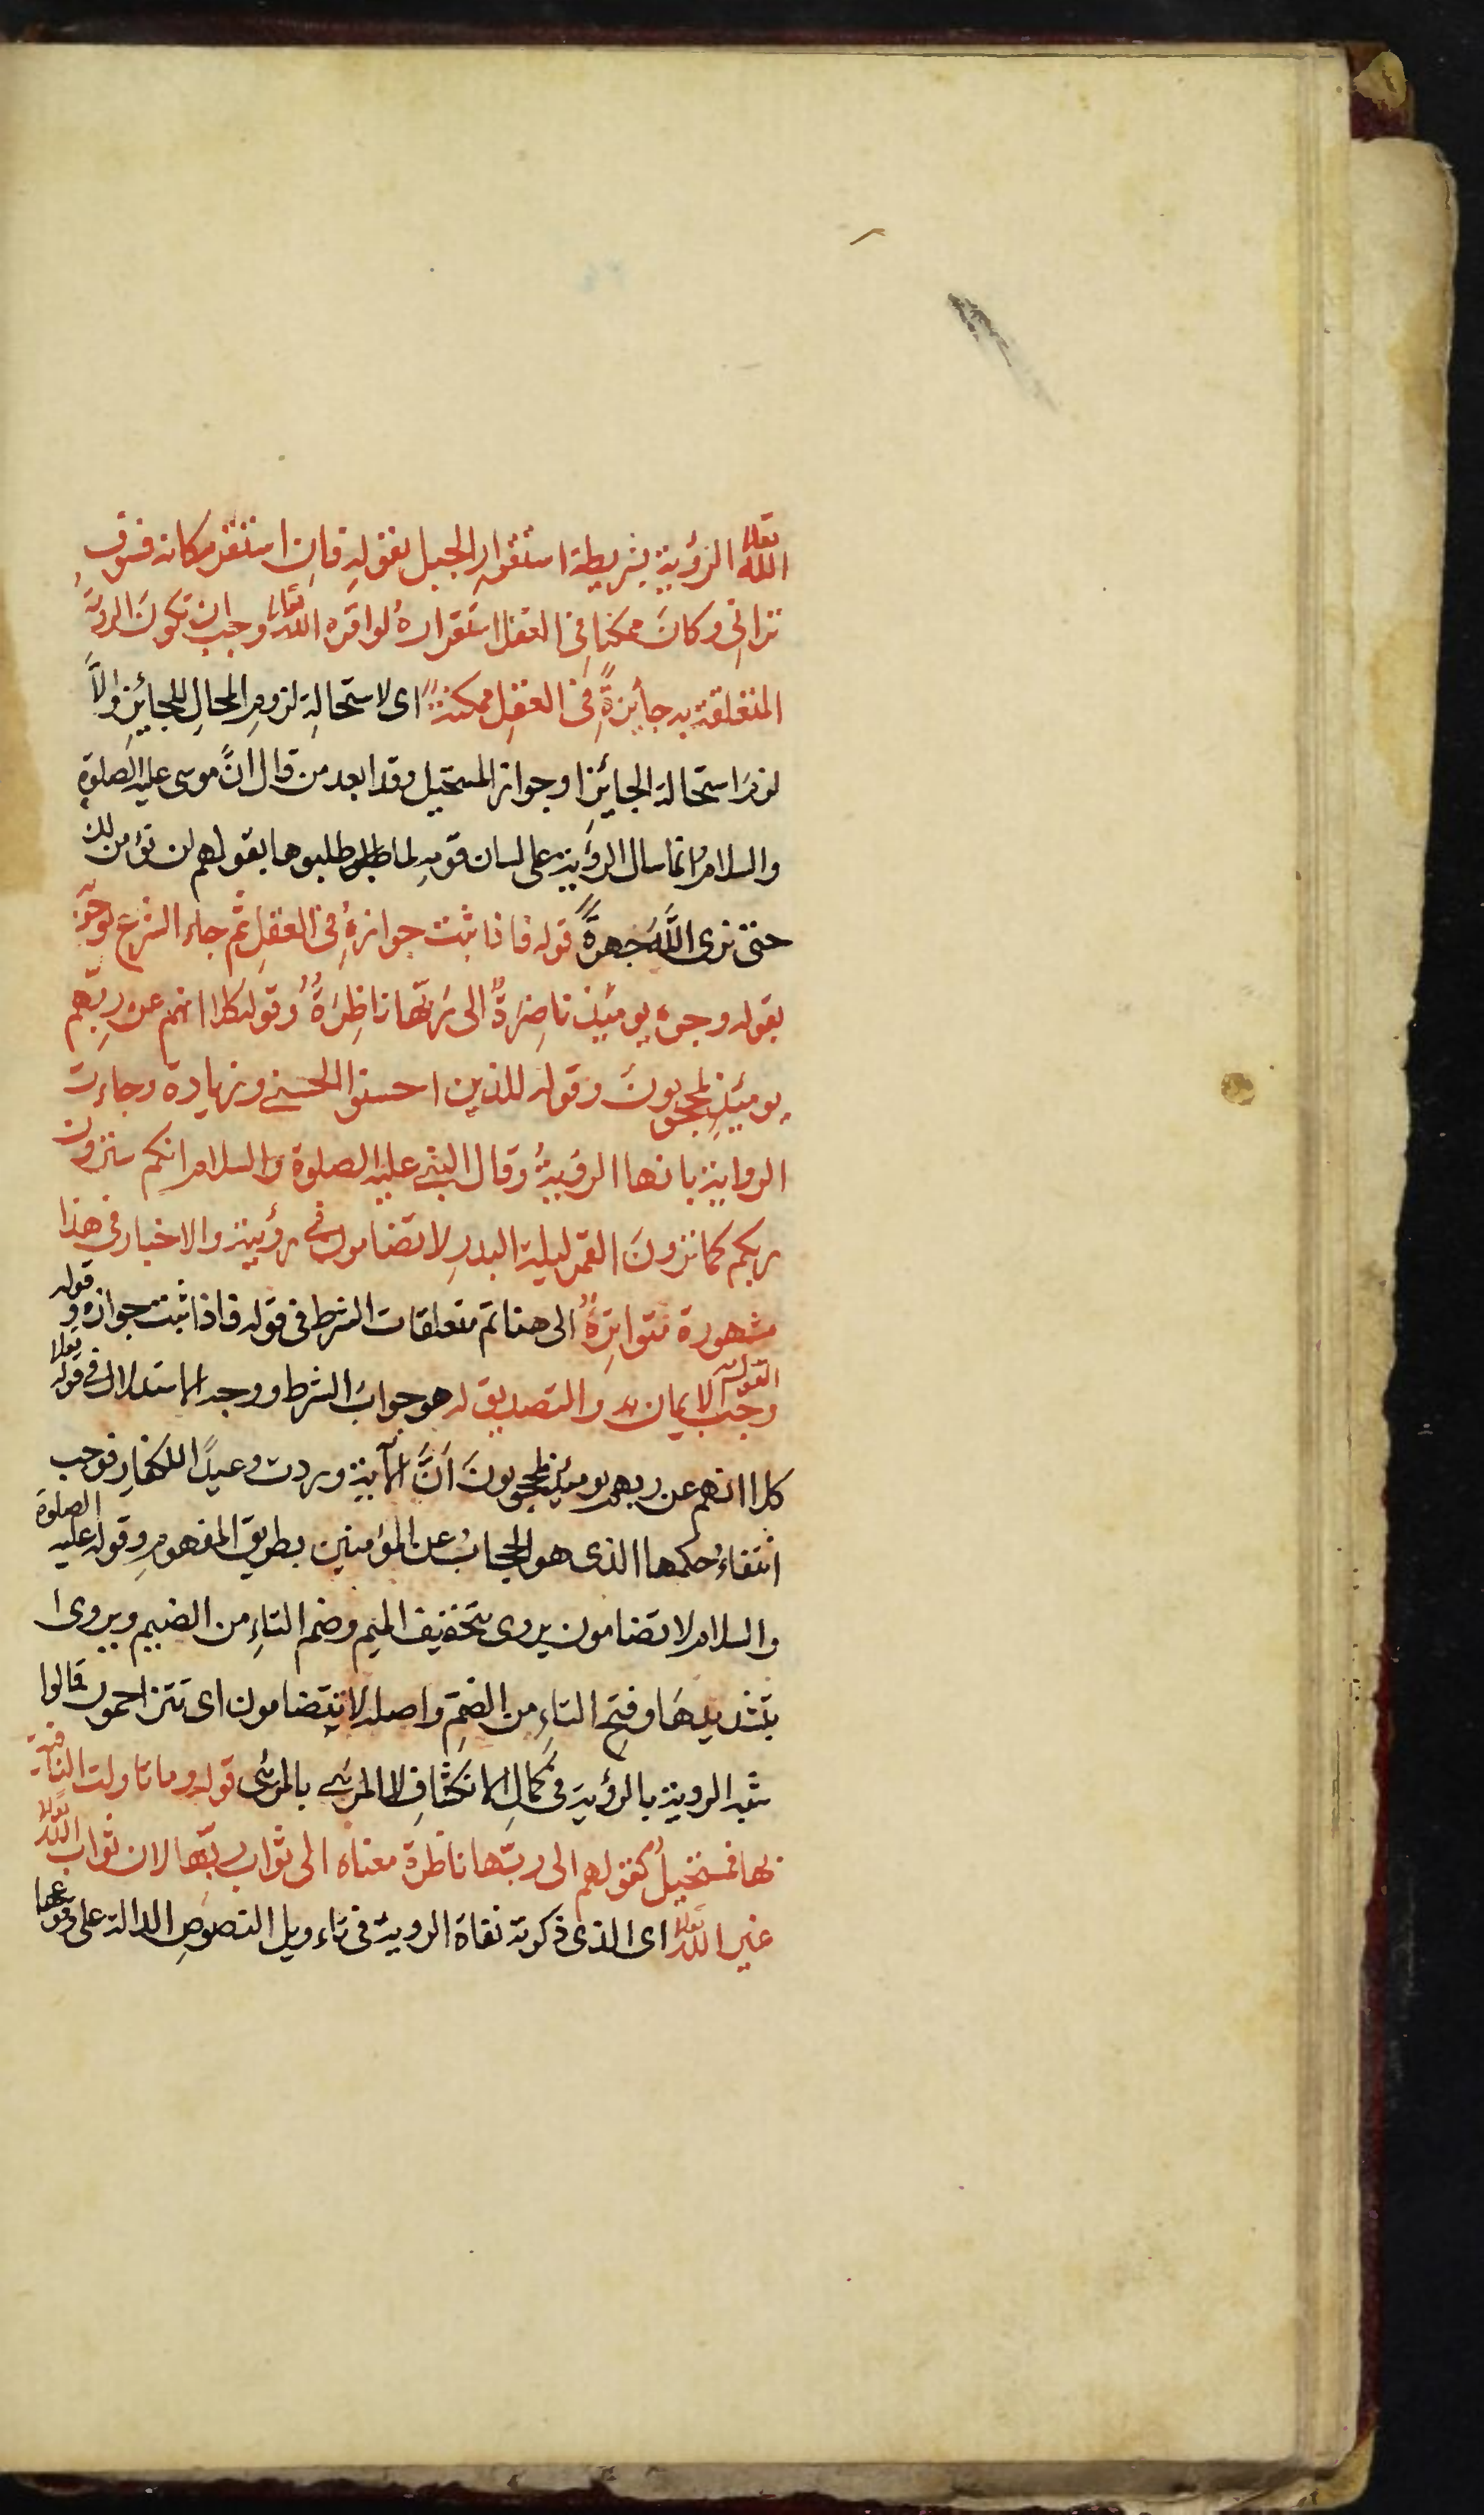 الله تعالى الرؤية بشريطة استقرارِ الجبل بقولهِ فاِن استقر مكانه فسوف
ترانى وكانَ ممكنا فى العقل استقرارهُ لو اقره الله تعالى وجب ان تكونَ الروية
المتعلقة به جائزةً فى العقلِ ممكنةً اى لاستحالةِ لزومِ المحالِ للجائزِ والاَّ
لزمَ استحالة الجائزِ او جواز المستحيل وقد ابعد من قال انَّ موسى عليه الصلوة
والسلامُ انما سال الرؤية على لسان قومهِ لما طلبوها بقولهم لن نؤمن لك
حتى نرى اللهَ جهرةً قوله فاذا ثبت جوازهُ فى العقلِ ثم جاء الشرع بوجوبه
بقوله وجوه يومئذٍ ناضِرَةٌ الى ربّها ناظِرَةٌ وقوله كلا انهم عن ربِّهم
يومئذٍ لمحجوبونَ وقوله للذين احسنوا الحسنى وزيادة وجاءت
الرواية بانها الرؤيةُ وقال النبى عليه الصلوة والسلام انكم سترون
ربكم كما ترونَ القمرَ ليلة البدرِ لا تضامون فى رؤيته والاخبار فى هذا
مشهورة متواترةً الى هنا تم متعلقات الشرط فى قوله فاذا ثبت جوازه وقوله
وجب القول والايمان به والتصديق له هو جوابُ الشرط ووجه الاستدلال فى قوله تعالى
كلا انهم عن ربهم يومئذٍ لمحجوبونَ اَنَّ الآية وردت وعيدًا للكفارِ فوجب
انتفاءُ حكمها الذى هو الحجابُ عن المؤمنين بطريق المفهومِ وقوله عليه الصلوة
والسلام لا تضامون يروى بتخفيف الميم وضم التاءِ من الضيم ويروى
بتشديدهَا وفتح التاءِ من الضمّ واصله لا تتضامون اى تتزاحمون قالوا
شبه الروية بالرؤية فى كمالِ الانكشافِ لا المرئى بالمرئى قوله وما تاولت النافية
لها فمستحيلٌ كقولهم الى ربّها ناظرة معناه الى ثواب ربّها لان ثواب الله تعالى
غير الله تعالى اى الذى ذكرته نفاة الروية فى تاءويل النصوصِ الدالة على وقوعها